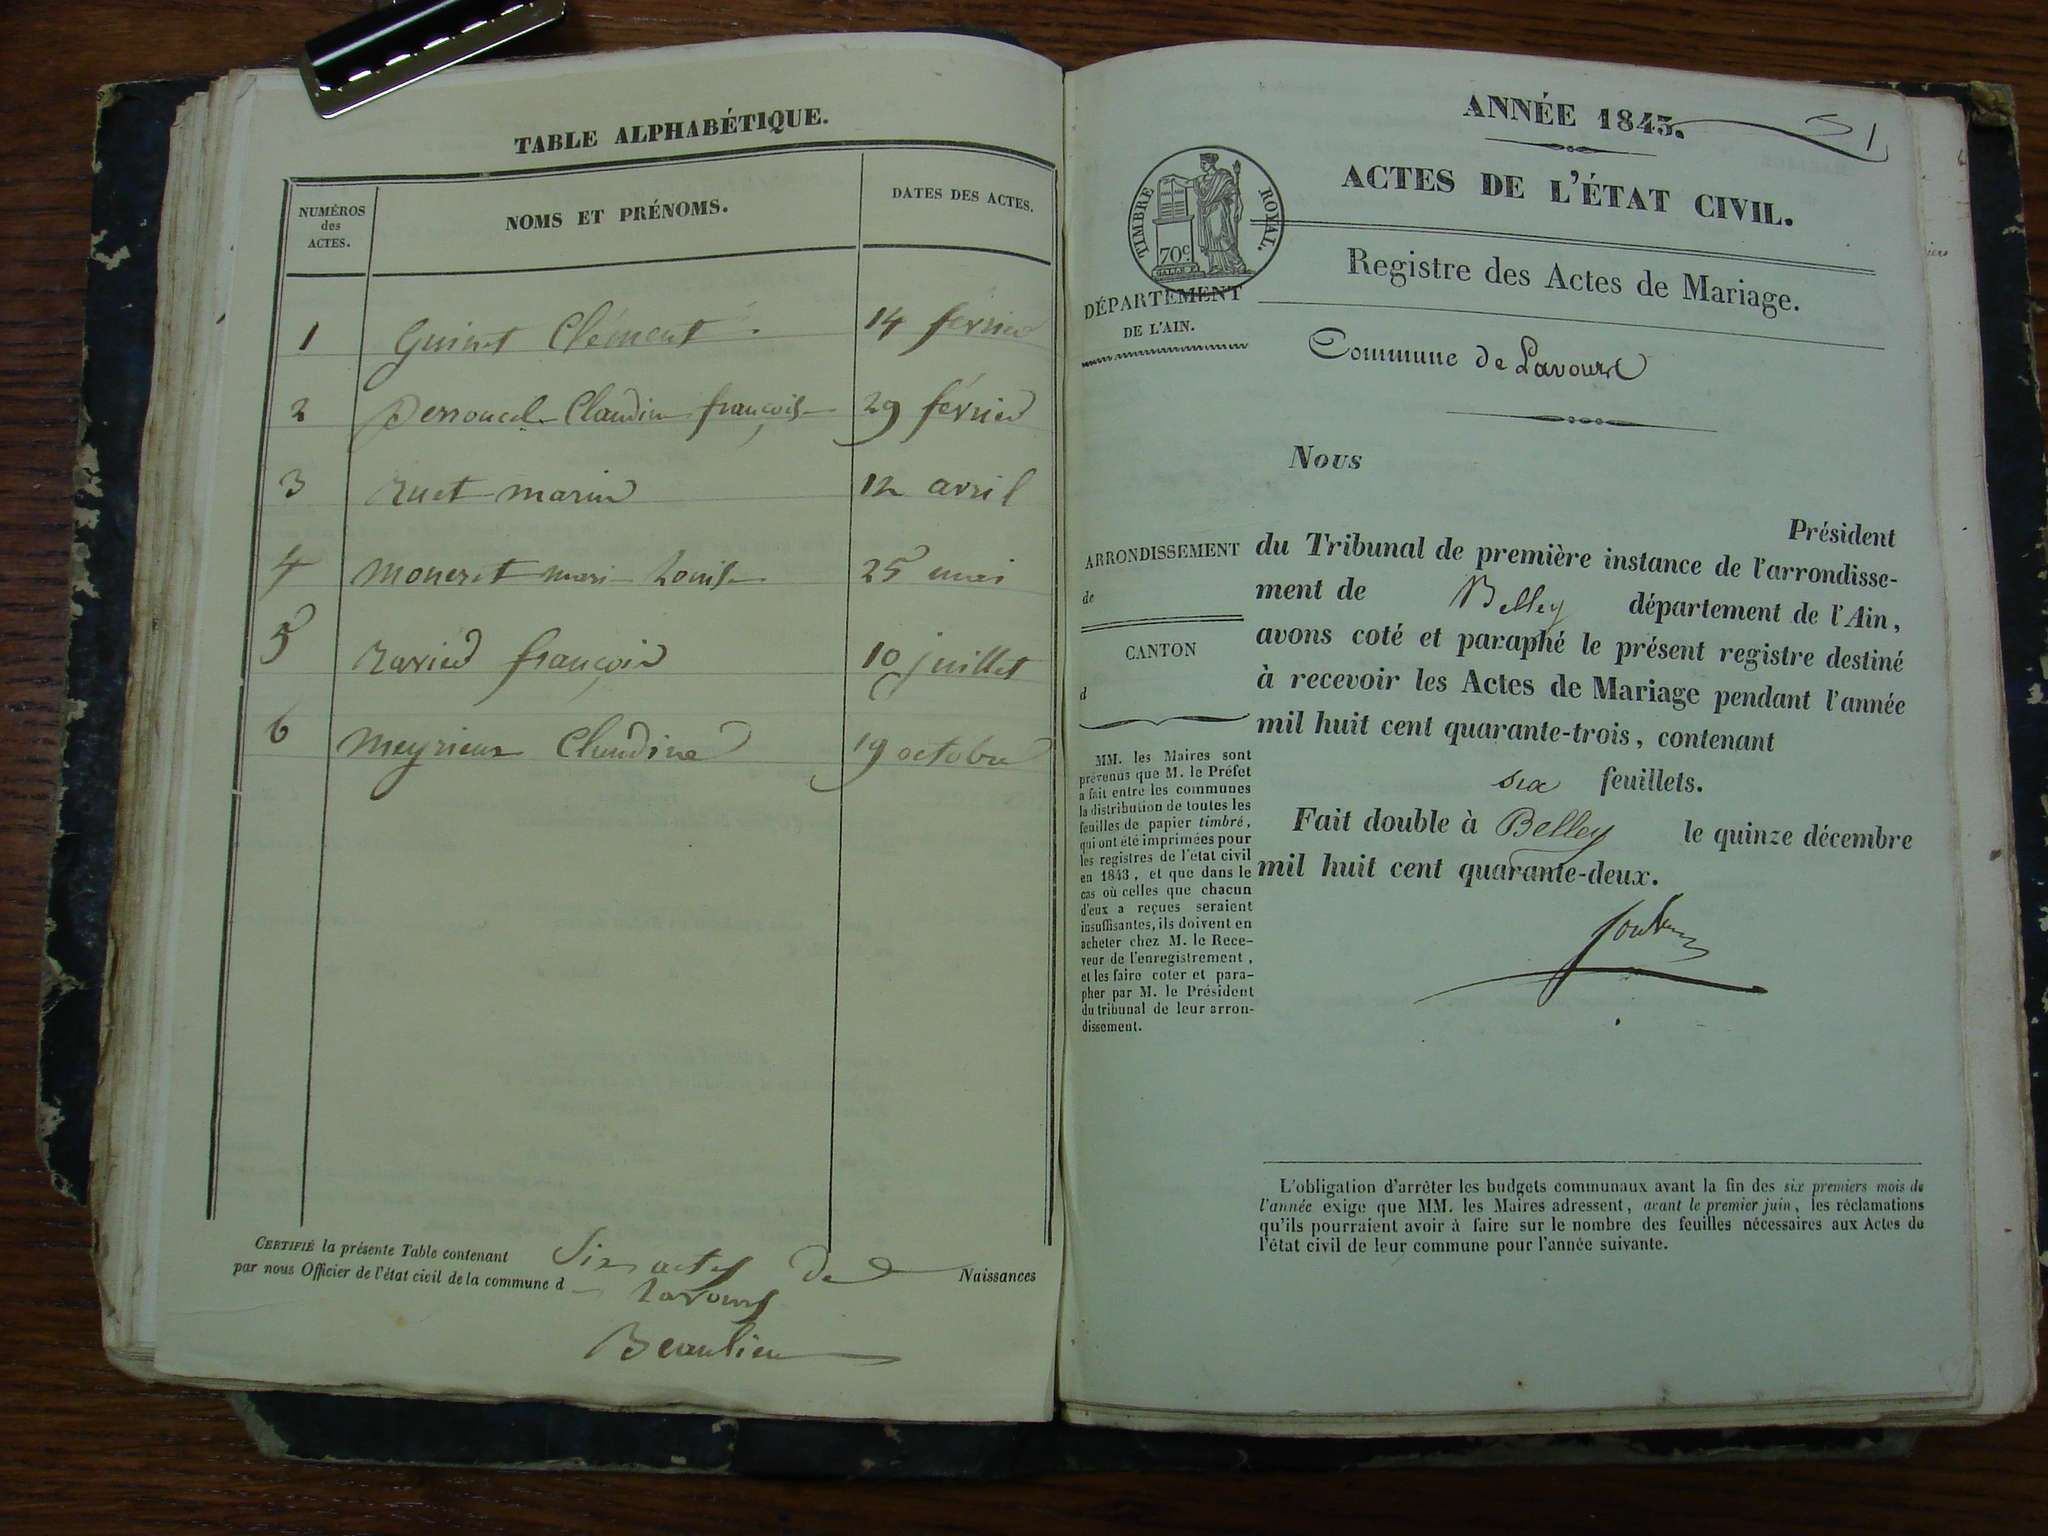 TABLE ALPHABÉTIQUE.
NUMÉROS
des
ACTES.
NOMS ET PRÉNOMS.
DATES DES ACTES.
1 Guinet Clément 14 février
2 Claudine françoise 29 février
3 ruet marie 12 avril
4 moneret mari Louise 25 mai
5 ravier françois 10 juillet
6 meyrieux Claudine 19 octobre
CERTIFIÉ la présente Table contenant Six actes de Naissances
par nous Officier de l'état civil de la commune d Lavours
Beaulieu
ANNÉE 1843.
51
ACTES DE L'ÉTAT CIVIL.
TIMBRE ROYAL.
70c
Registre des Actes de Mariage.
DÉPARTEMENT
DE L'AIN.
Commune de Lavours
Nous
Président
ARRONDISSEMENT
de
CANTON
d
du Tribunal de première instance de l'arrondisse-
ment de Belley département de l'Ain,
avons coté et paraphé le présent registre destiné
à recevoir les Actes de Mariage pendant l'année
mil huit cent quarante-trois, contenant
six feuillets.
Fait double à Belley le quinze décembre
mil huit cent quarante-deux.
MM. les Maires sont
prévenus que M. le Préfet
a fait entre les communes
la distribution de toutes les
feuilles de papier timbré,
qui ont été imprimées pour
les registres de l'état civil
en 1843, et que dans le
cas où celles que chacun
d'eux a reçues seraient
insuffisantes, ils doivent en
acheter chez M. le Rece-
veur de l'enregistrement,
et les faire coter et para-
pher par M. le Président
du tribunal de leur arron-
dissement.
L'obligation d'arrêter les budgets communaux avant la fin des six premiers mois de
l'année exige que MM. les Maires adressent, avant le premier juin, les réclamations
qu'ils pourraient avoir à faire sur le nombre des feuilles nécessaires aux Actes de
l'état civil de leur commune pour l'année suivante.